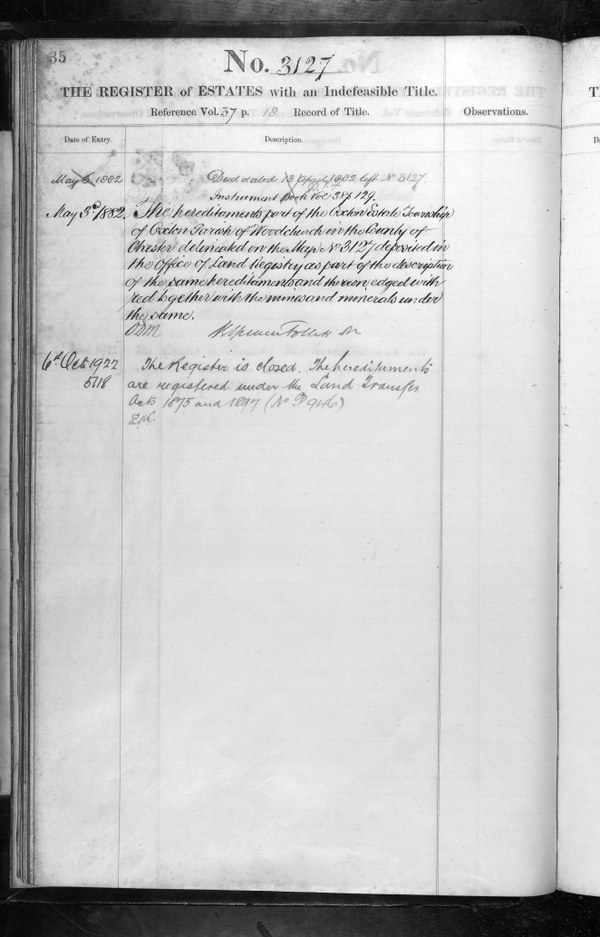 35
No. 3127
THE REGISTER of ESTATES with an Indefeasible Title.
Reference Vol. 37 p. 18 Record of Title.
Observations.
Date of Entry.
Description.
May 3 1882
Deed dated 13 April 1882 left No 3127
Instrument Book Vol 38 p 129.
May 3d 1882.
The hereditaments part of the Oxton Estate Township
of Oxton Parish of Woodchurch in the County of
Chester delineated on the Map No 3127 deposited in
the Office of Land Registry as part of the description
of the same hereditaments and thereon edged with
red together with the mines and minerals under
the same.
6th Oct 1922
5118
The Register is closed. The hereditaments
are registered under the Land Transfer
Acts 1875 and 1897 (No P 946)